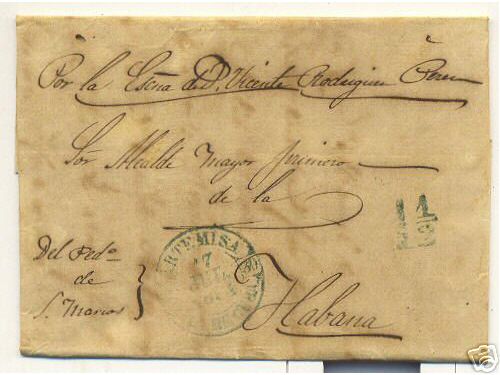 Por la Escna de D. Vicente Rodriguez Perez
Sor Alcalde Mayor primero
de la
Habana
Del Pedo
de
S. Marcos
ARTEMISA
7